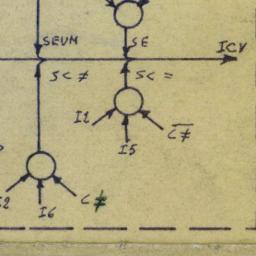 SEUM SE ICY
S<≠ S<=
I1 I5 C≠̅
I2 I6 C≠